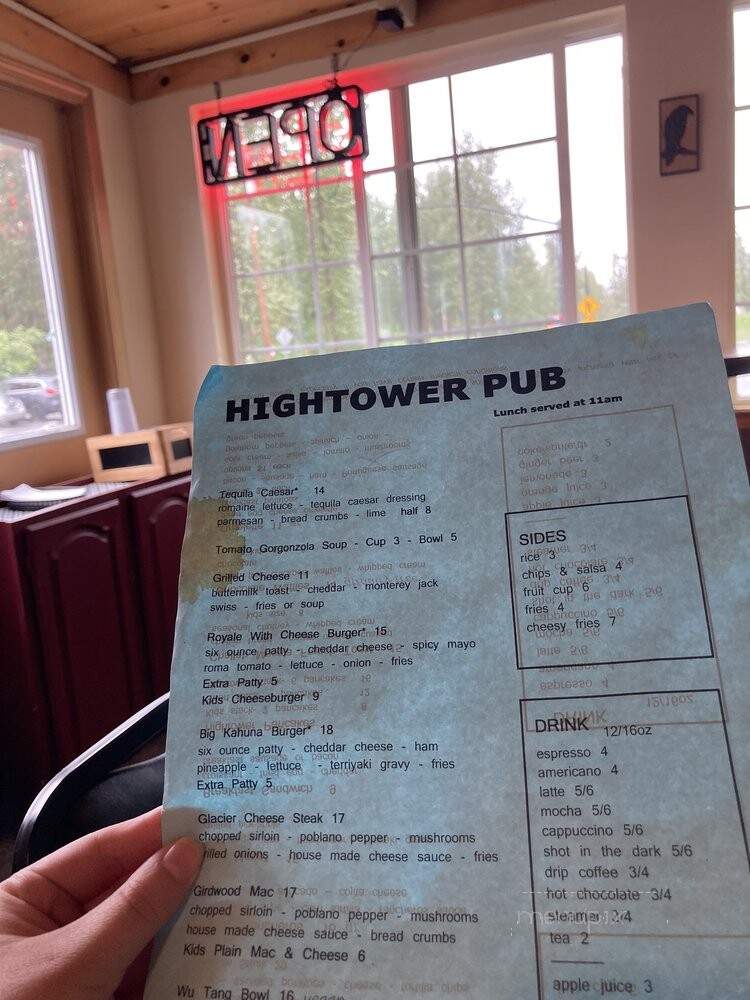 OPEN
HIGHTOWER PUB
Lunch served at 11am
Tequila Caesar* 14
romaine lettuce - tequila caesar dressing
parmesan - bread crumbs - lime half 8
Tomato Gorgonzola Soup - Cup 3 - Bowl 5
Grilled Cheese 11
buttermilk toast - cheddar - monterey jack
swiss - fries or soup
Royale With Cheese Burger* 15
six ounce patty - cheddar cheese - spicy mayo
roma tomato - lettuce - onion - fries
Extra Patty 5
Kids Cheeseburger 9
Big Kahuna Burger* 18
six ounce patty - cheddar cheese - ham
pineapple - lettuce - terriyaki gravy - fries
Extra Patty 5
Glacier Cheese Steak 17
chopped sirloin - poblano pepper - mushrooms
grilled onions - house made cheese sauce - fries
Girdwood Mac 17
chopped sirloin - poblano pepper - mushrooms
house made cheese sauce - bread crumbs
Kids Plain Mac & Cheese 6
Wu Tang Bowl 16 vegan
SIDES
rice 3
chips & salsa 4
fruit cup 6
fries 4
cheesy fries 7
DRINK 12/16oz
espresso 4
americano 4
latte 5/6
mocha 5/6
cappuccino 5/6
shot in the dark 5/6
drip coffee 3/4
hot chocolate 3/4
steamer
tea 2
apple juice 3